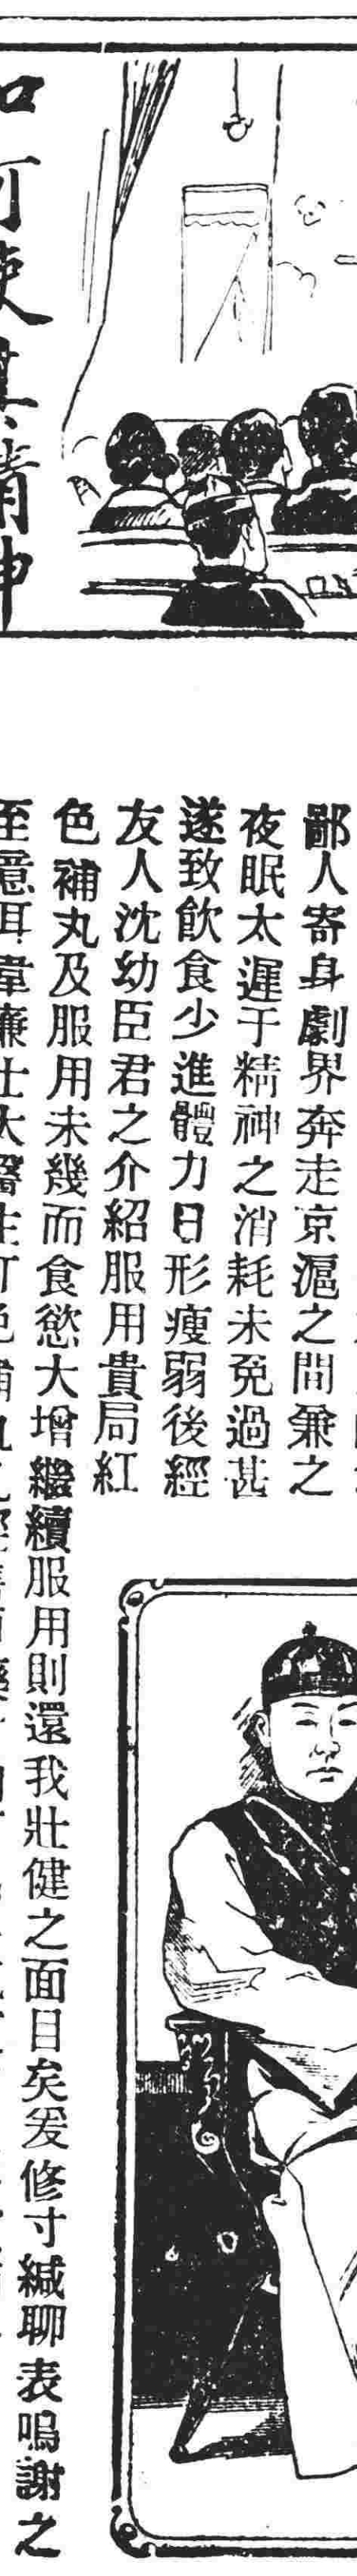 鄙人寄身劇界奔走京滬之間兼之
夜眠太遲于精神之消耗未免過甚
遂致飲食少進體力日形瘦弱後經
友人沈幼臣君之介紹服用貴局紅
色補丸及服用未幾而食慾大增繼續服用則還我壯健之面目矣爰修寸緘聊表嗚謝之
至意耳韋廉士大醫生紅色補丸